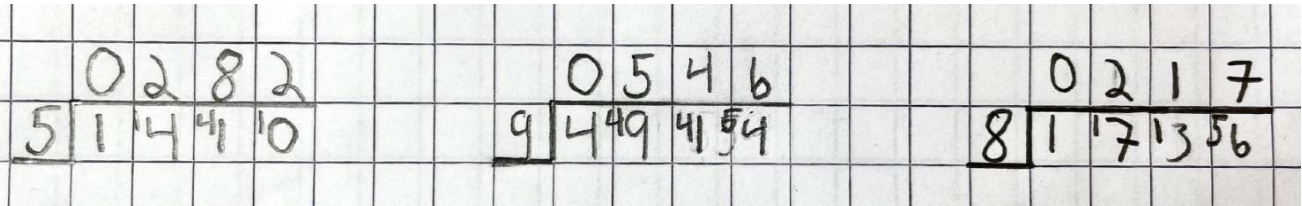 0 2 8 2
5 1 ¹4 ⁴1 ¹0
0 5 4 6
9 4 ⁴9 ⁴1 ⁵4
0 2 1 7
8 1 ¹7 ¹3 ⁵6